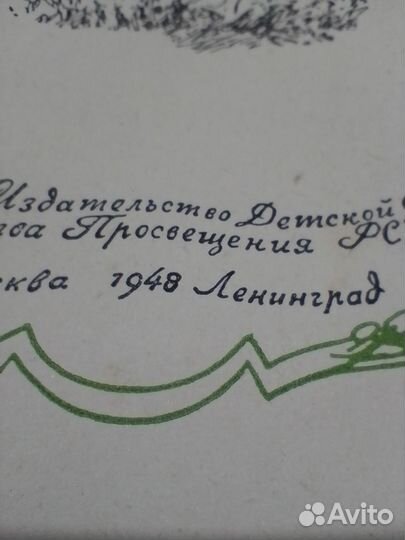 Издательство Детской
ва Просвещения РС
сква 1948 Ленинград
Avito